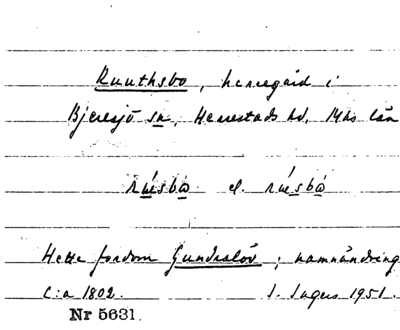 Ruuthsbo, herregård i
Bjeresjö sn, Herrestads hd, Mås län
rúsbo el. rúsbo
Hette fordom Gundralöv; namnändring
c:a 1802. I. Ingers 1951.
Nr 5631.